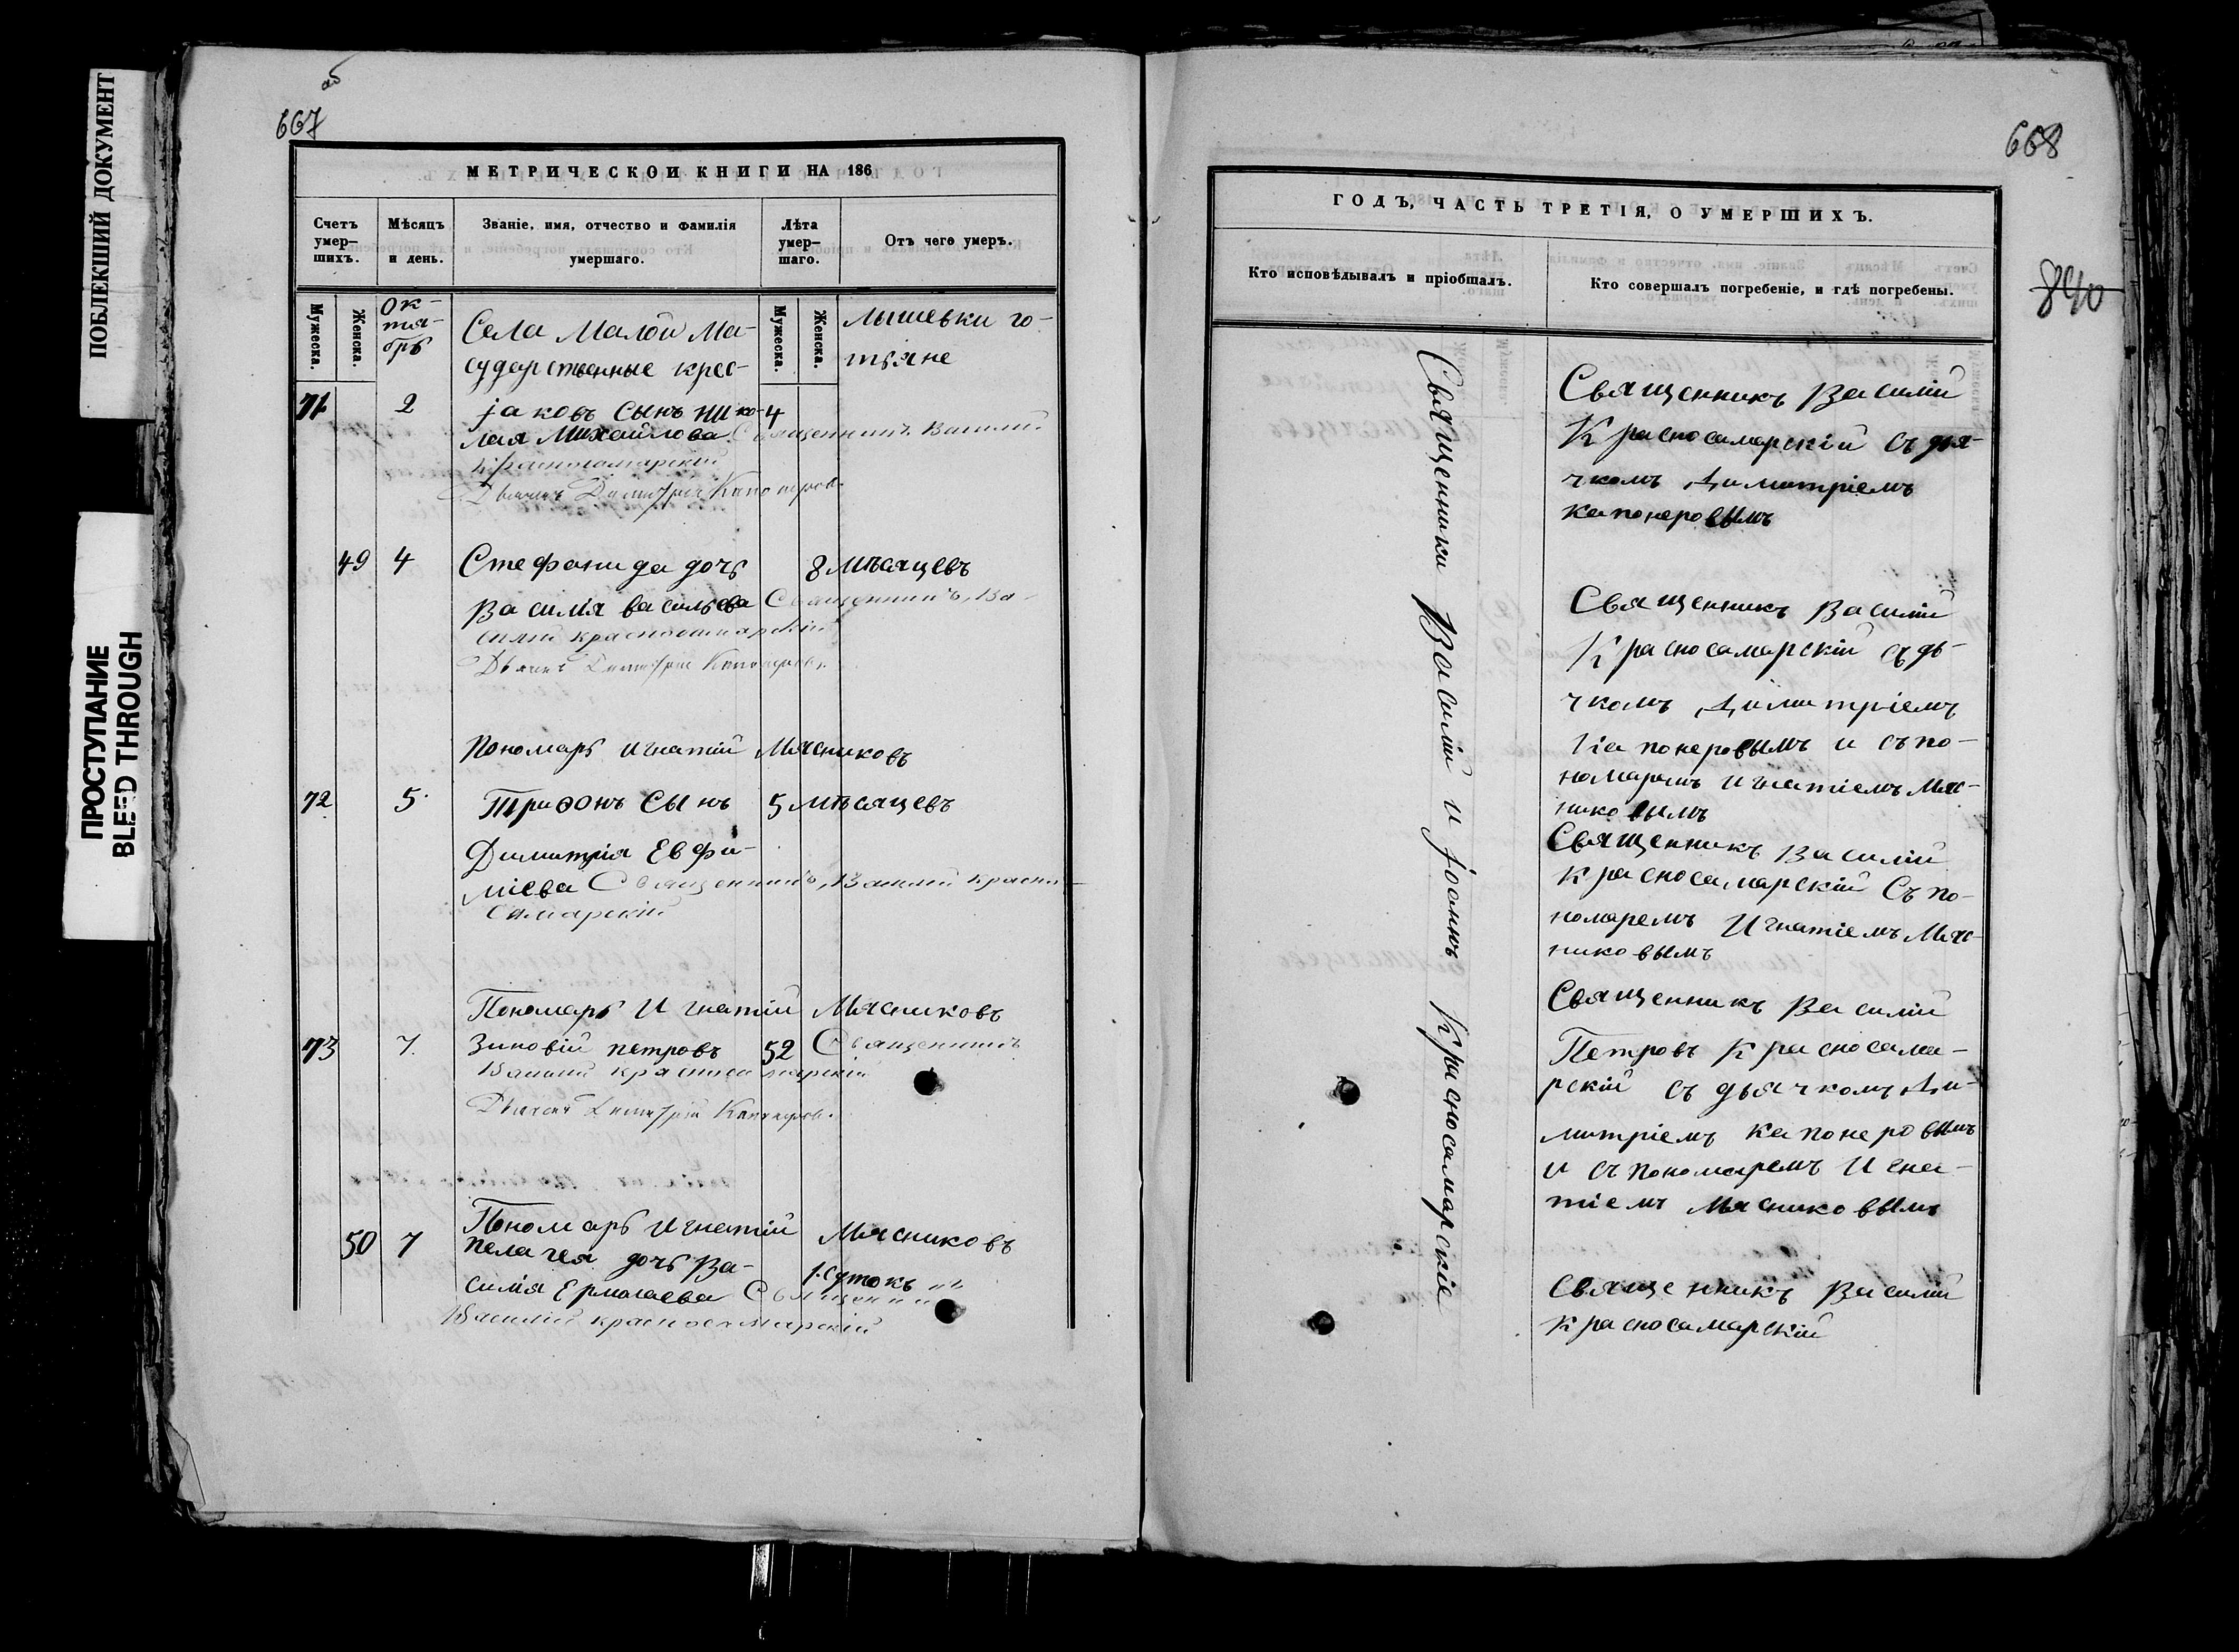 ПОБЛЕКШИЙ ДОКУМЕНТ
ПРОСТУПАНИЕ
BLEED THROUGH
об
667
МЕТРИЧЕСКОИ КНИГИ НА 186
Счетъ умер-шихъ.
Мѣсяцъ и день.
Званіе, имя, отчество и фамилія умершаго.
Лѣта умер-шаго.
Отъ чего умеръ.
Мужеска.
Женска.
Ок-
тя-
брь
Мужеска.
Женска.
Села Малой Ма-лышевки го-
сударственные крес-тьяне
71 2 јаковъ сынъ Нико- 4
лая Михайлова Священникъ Василий
Красносамарский
Дьячекъ Димитрий Капонеров
49 4 Стефанида дочь 8 мѣсяцевъ
Василія васильева Священникъ, Ва-
силий красносамарский
Дьячекъ Димитрий Капонеров
Пономарь игнатій Мясниковъ
72 5 Триѳонъ Сынъ 5 мѣсяцевъ
Димитрія Евфи-
міева Священникъ, Василий красно-
Самарский
Пономарь Игнатій Мясниковъ
73 7. Зиновій петровъ 52 Священникъ
Василий красносамарский
Дьячекъ Димитрий Капонеров.
Пономарь игнатій Мясниковъ
50 7 пелагея дочь Ва-
1. сутокъ
силія Ермолаева Священникъ
Василий красносамарский
668
840
ГОДЪ, ЧАСТЬ ТРЕТІЯ, О УМЕРШИХЪ.
Кто исповѣдывалъ и пріобщалъ.
Кто совершалъ погребеніе, и гдѣ погребены.
Священники Василій и јоаннъ Красносамарскіе
Священникъ Василій
Красносамарскій съ дья-
чкомъ Димитріемъ
капонеровымъ
Священникъ Василій
Красносамарскій съ дь-
чкомъ Димитріемъ
Капонеровымъ и съ по-
номаремъ игнатіемъ Мяс-
никовымъ
Священникъ Василій
Красносамарскій Съ по-
номаремъ Игнатіемъ Мяс-
никовымъ
Священникъ Василій
Петровъ Красносама-
рскій съ дьячкомъ Ди-
митріемъ капонеровымъ
и съ пономаремъ Игна-
тіемъ Мясниковымъ
Священникъ Василій
красносамарскій